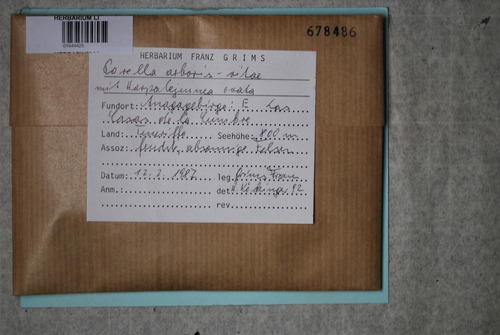 HERBARIUM LI
678486
HERBARIUM FRANZ GRIMS
Porella arboris-vitae
mit Harpalejeunea ovata
Fundort: Anagagebirge: E Las
Casas de la Cumbre
Land: Teneriffa Seehöhe: 800 m
Assoz: feuchte, absonnige Felsen
Datum: 12.2.1987 leg. Grims Franz
Anm. det. 92
rev.